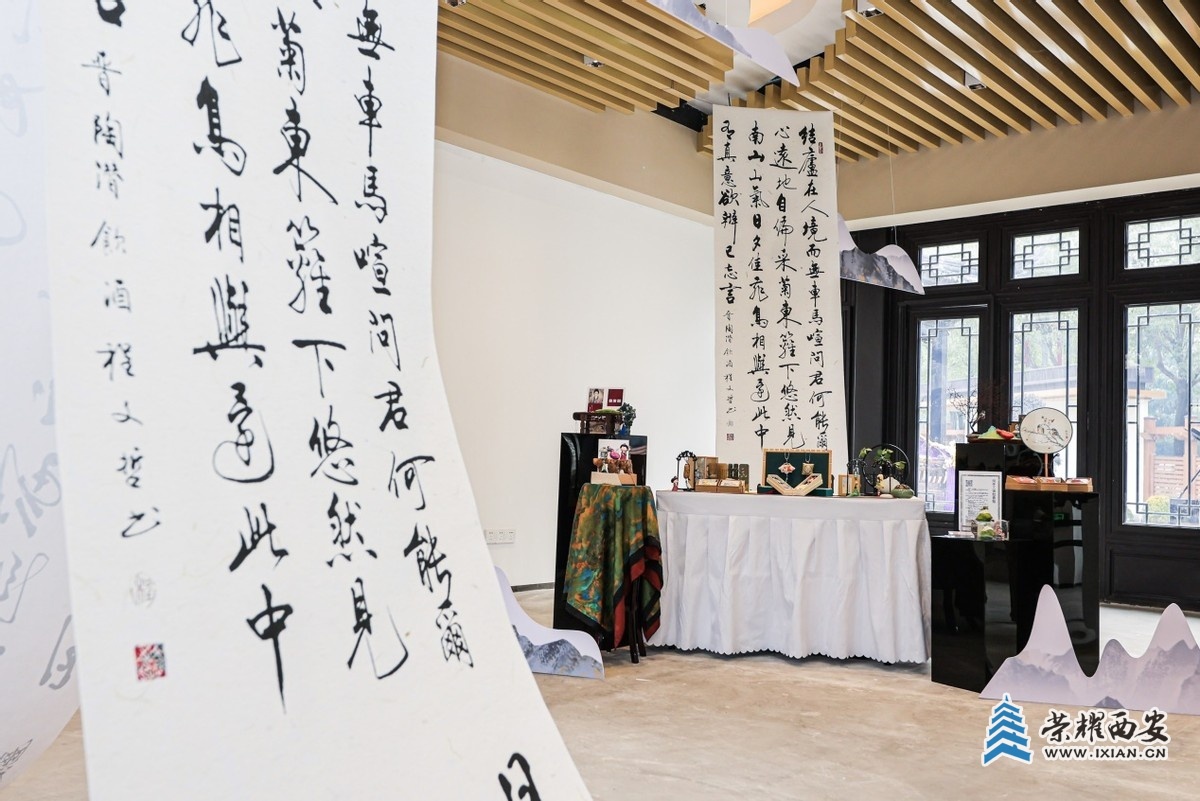 無車馬喧問君何能爾
菊東籬下悠然見
飛鳥相與還此中
晋陶潜飲酒程文哲书
結廬在人境而無車馬喧問君何能爾
心遠地自偏采菊東籬下悠然見
南山山氣日夕佳飛鳥相與還此中
有真意欲辨已忘言 晋陶潜飲酒程文哲书
荣耀西安
WWW.IXIAN.CN